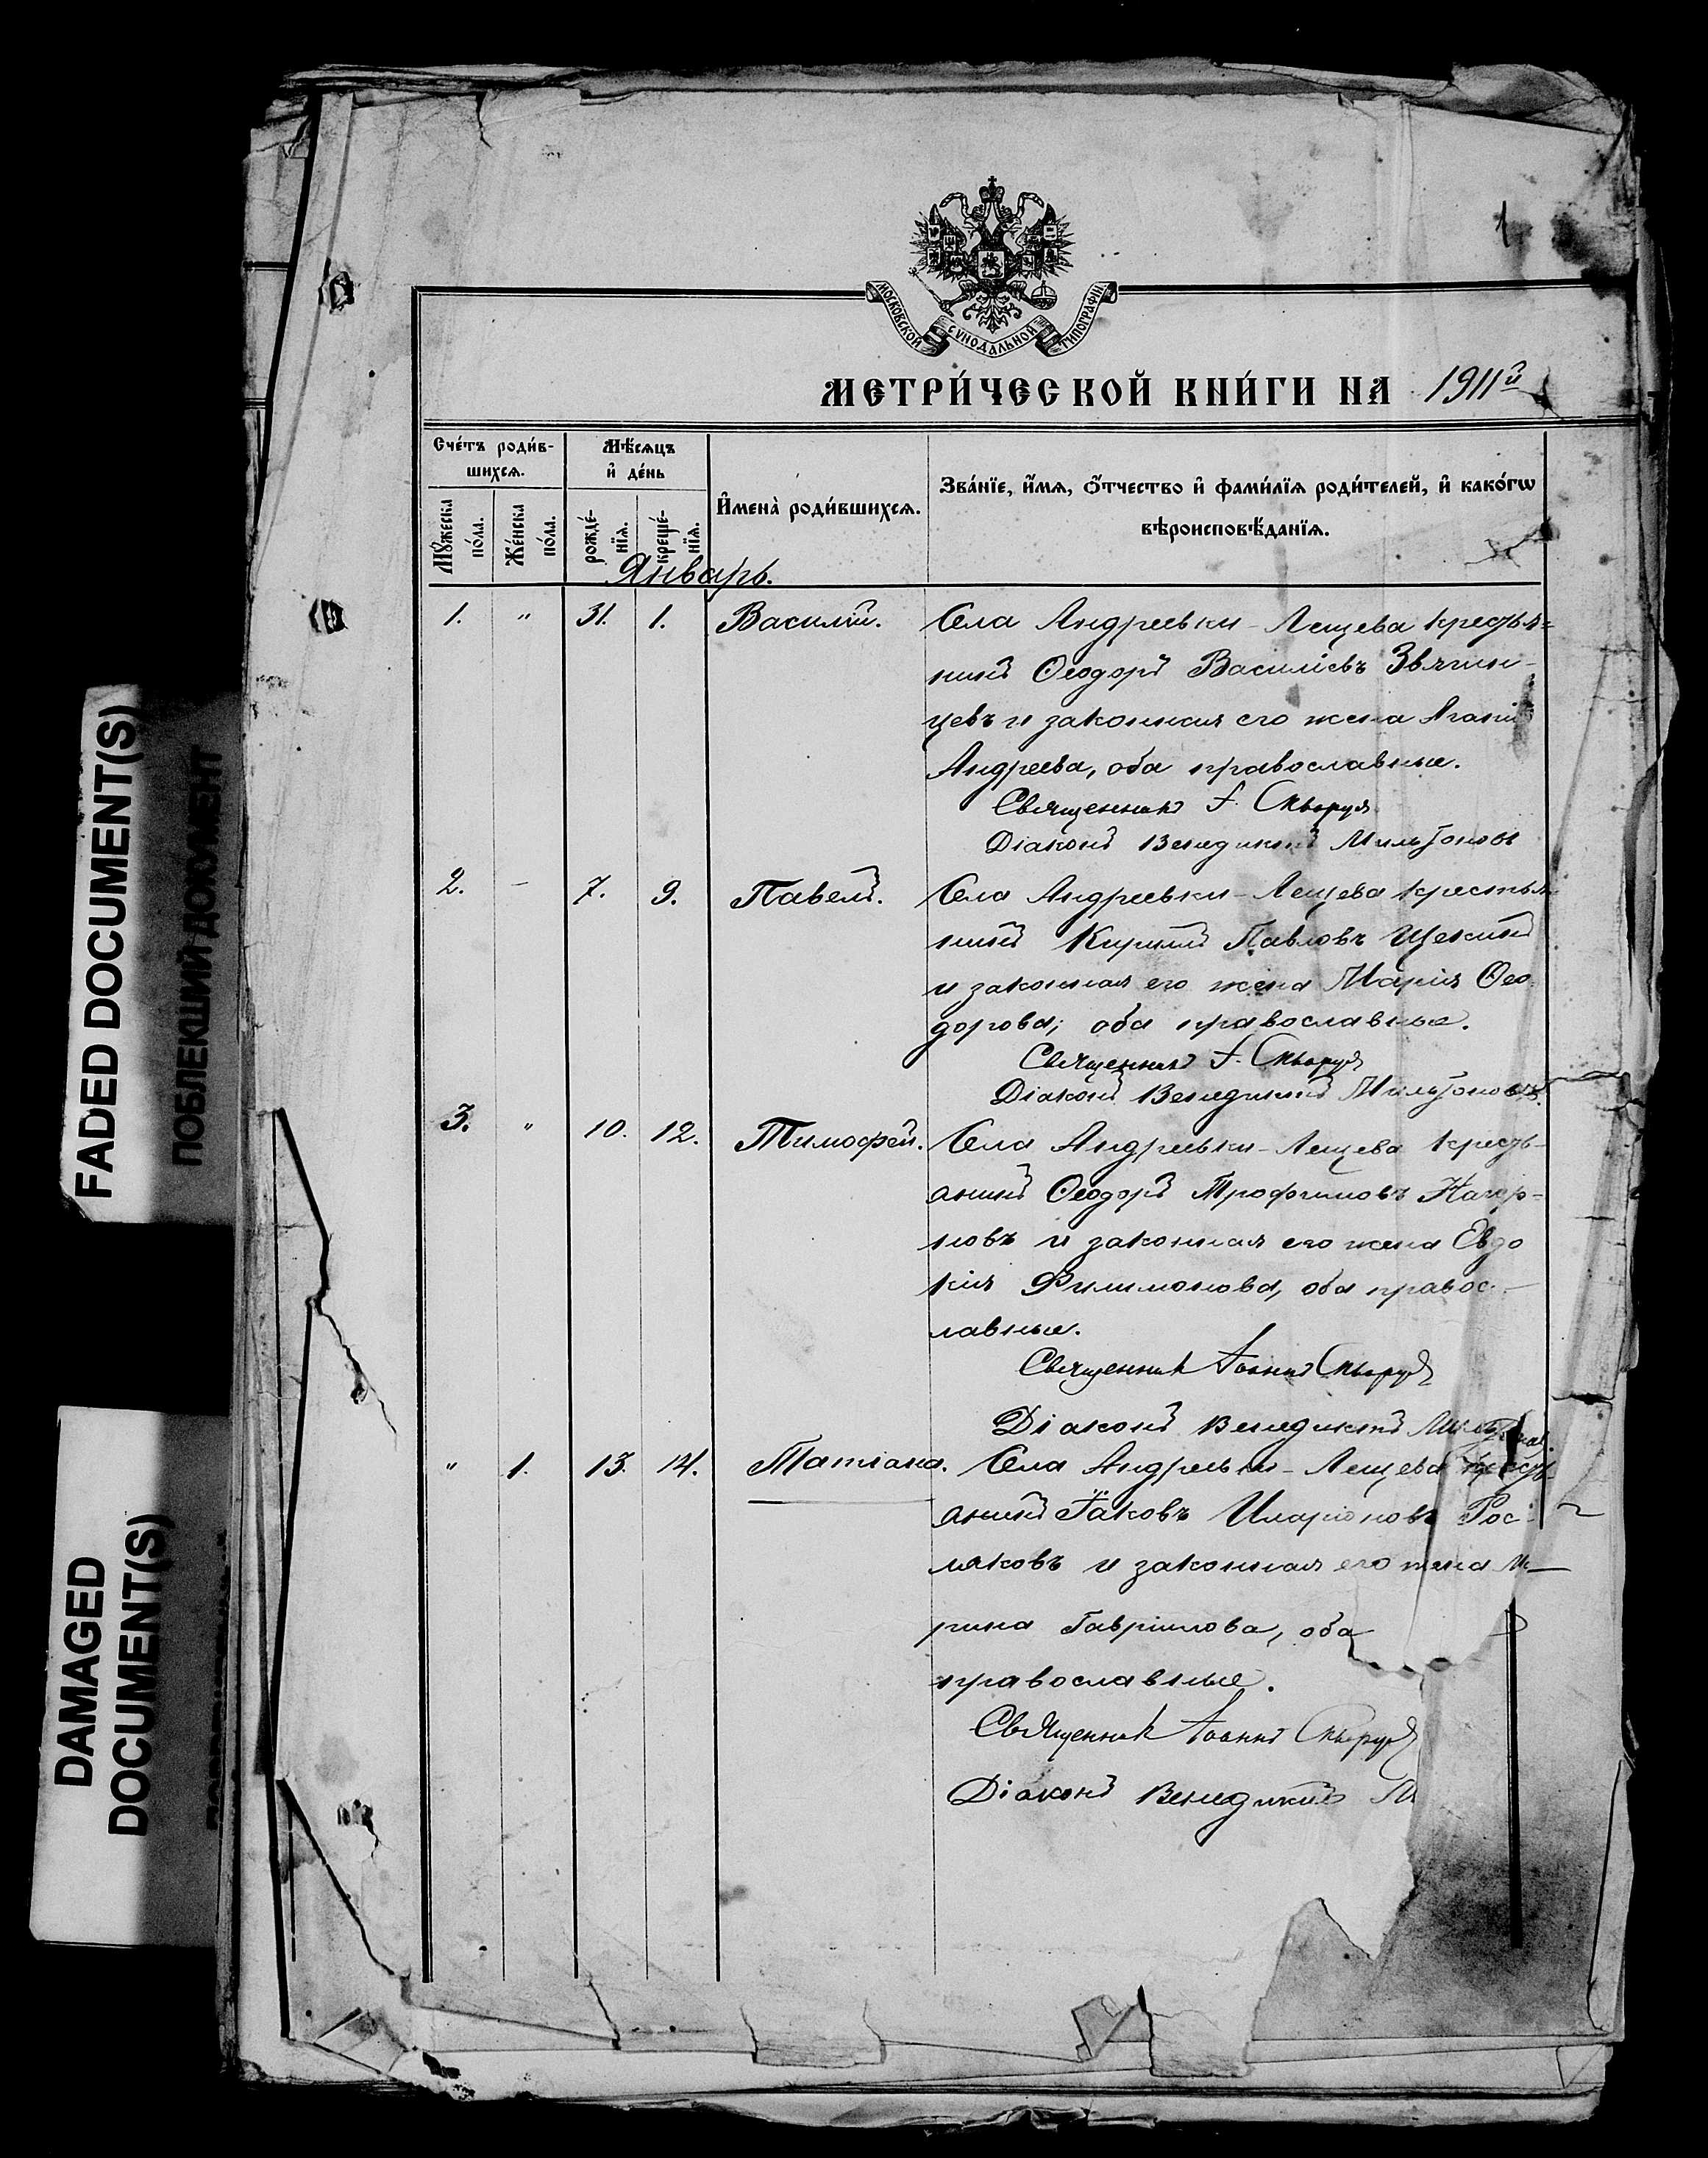 FADED DOCUMENT(S)
ПОБЛЕКШИЙ ДОКУМЕНТ
DAMAGED
DOCUMENT(S)
1
МОСКОВСКОЙ СѴНОДАЛЬНОЙ ТИПОГРАФІИ
МЕТРИ́ЧЕСКОЙ КНИ́ГИ НА 1911й
Сче́тъ роди́в-
шихсѧ.
Мꙋ́жеска
по́ла.
Же́нска
по́ла.
Мѣ́сѧцъ
и҆ де́нь
рожде́-
нїѧ.
креще́-
нїѧ.
И҆мена̀ роди́вшихсѧ.
Зва́нїе, и҆́мѧ, ѻ҆́тчество и҆ фами́лїѧ роди́телей, и҆ како́гѡ
вѣроисповѣ́данїѧ.
Январь.
1. " 31. 1. Василій. Села Андреевки-Лещева кресть-
нинъ Ѳеодоръ Василіевъ Звягин-
цевъ и законная его жена
Андреева, оба православные.
Священникъ І. Скворцовъ
Діаконъ Венедиктъ Мильтоновъ
2. - 7. 9. Павелъ. Села Андреевки-Лещева крестья-
нинъ Кириллъ Павловъ Щекинъ
и законная его жена Марія Ѳео-
дорова; оба православные.
Священникъ І. Скворцовъ
Діаконъ Венедиктъ Мильтоновъ.
3. " 10. 12. Тимофей. Села Андреевки-Лещева кресть-
янинъ Ѳеодоръ Трофимовъ
и законная его жена Евдо
кія Филимонова, оба правос-
лавные.
Священникъ Іоаннъ Скворцовъ
Діаконъ Венедиктъ Мильтоновъ.
" 1. 13. 14. Татіана. Села Андреевки-Лещева кресть-
янинъ Іаковъ Иларіоновъ Рос-
ляковъ и законная его жена
рина Гавріилова, оба
православные.
Священникъ Іоаннъ Скворцовъ
Діаконъ Венедиктъ М